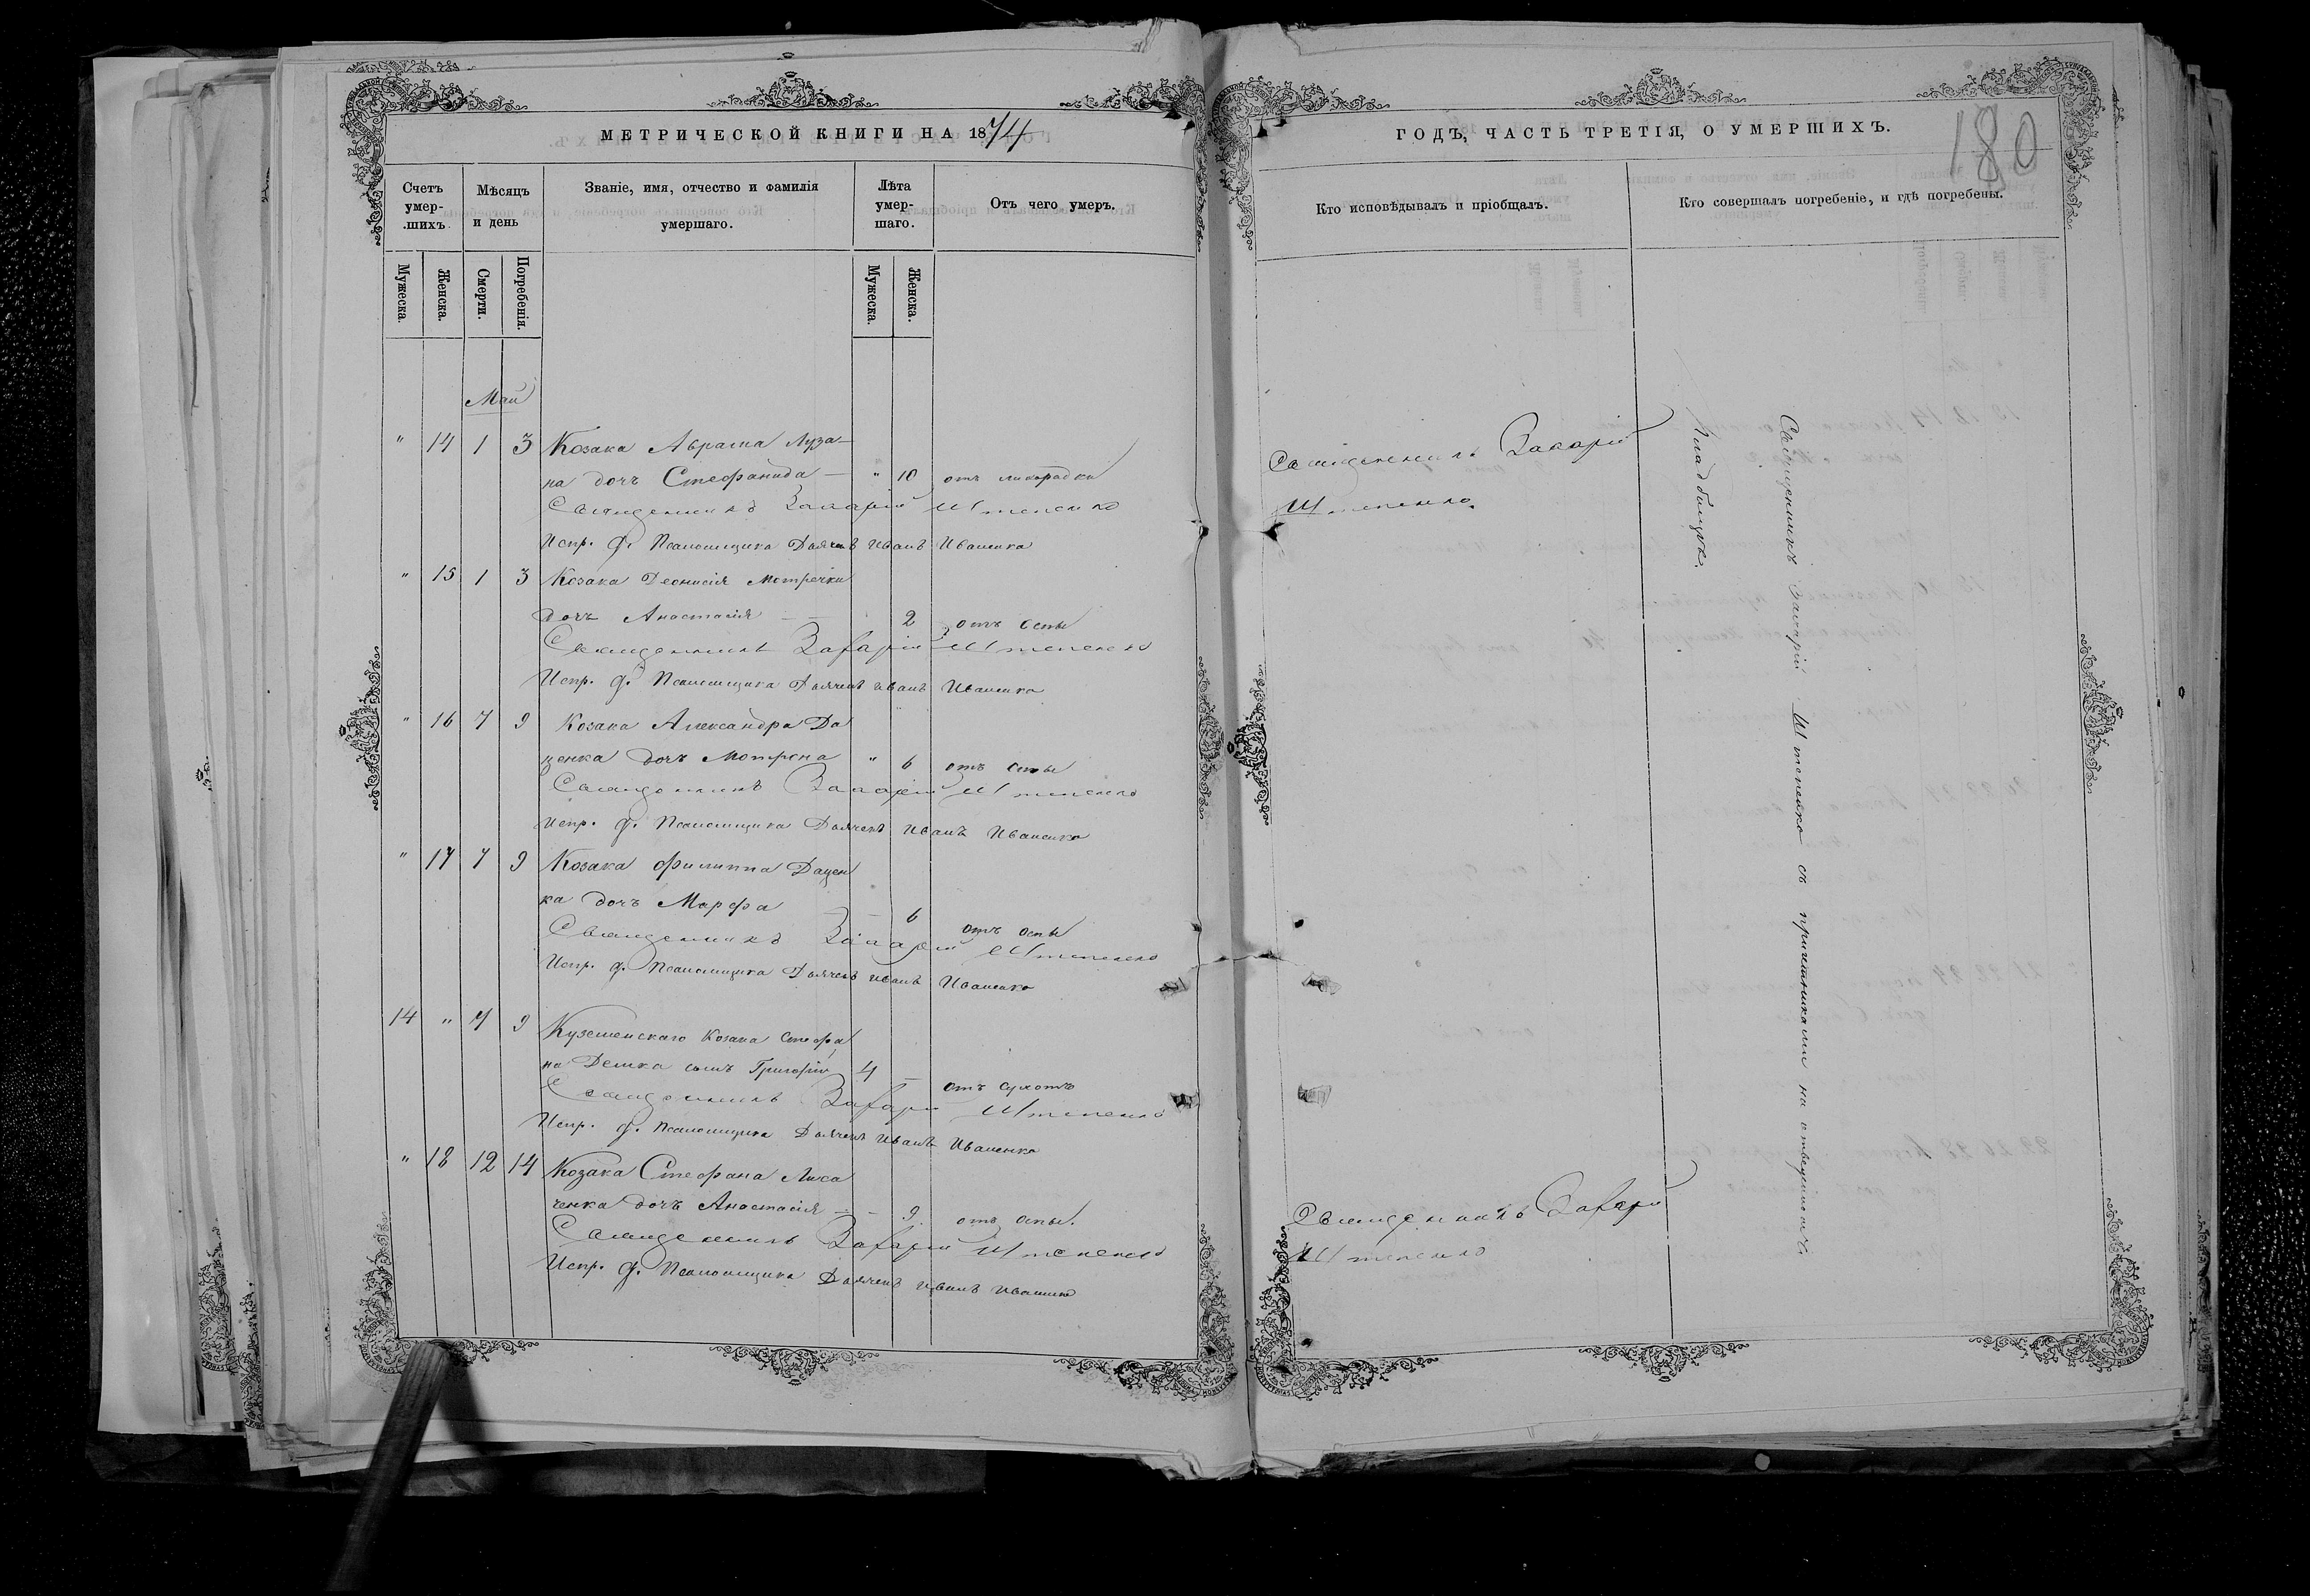 МЕТРИЧЕСКОЙ КНИГИ НА 1874
Счетъ умер-шихъ.
Мѣсяцъ и день
Званіе, имя, отчество и фамилія умершаго.
Лѣта умер-шаго.
Отъ чего умеръ.
Мужеска.
Женска.
Смерти.
Погребенія.
Мужеска.
Женска.
Май
" 14 1 3 Козака Аврама Луза-
на дочь Стефанида — " 10 отъ лихорадки
Священникъ Захарій Штепенко
Испр. д. Псаломщика Дьячекъ Иванъ Иваненко
" 15 1 3 Козака Деонисія Мотречки
дочь Анастасія — 2 отъ оспы
Священникъ Захарій Штепенко
Испр. д. Псаломщика Дьячекъ Иванъ Иваненко
" 16 7 9 Козака Александра Да
ценка дочь Мотрона " 6 отъ оспы
Священникъ Захарій Штепенко
Испр. д. Псаломщика Дьячекъ Иванъ Иваненко
" 17 7 9 Козака Филиппа Дацен
ка дочь Марфа — 6 отъ оспы
Священникъ Захарій Штепенко
Испр. д. Псаломщика Дьячекъ Иванъ Иваненко
14 " 7 9 Куземенскаго Козака Стефа
на Демка сынъ Григорій 4 — отъ сухотъ
Священникъ Захарій Штепенко
Испр. д. Псаломщика Дьячекъ Иванъ Иваненко
" 18 12 14 Козака Стефана Лиха
ченка дочь Анастасія — - 9. отъ оспы.
Священникъ Захарій Штепенко
Испр. д. Псаломщика Дьячекъ Иванъ Иваненко
ГОДЪ, ЧАСТЬ ТРЕТІЯ, О УМЕРШИХЪ.
180
Кто исповѣдывалъ и пріобщалъ.
Кто совершалъ погребеніе, и гдѣ погребены.
Священникъ Захарій
Штепенко.
Священникъ Захарій
Штепенко
Священникъ Захарій Штепенко съ причетниками на отведенномъ
кладбищѣ.